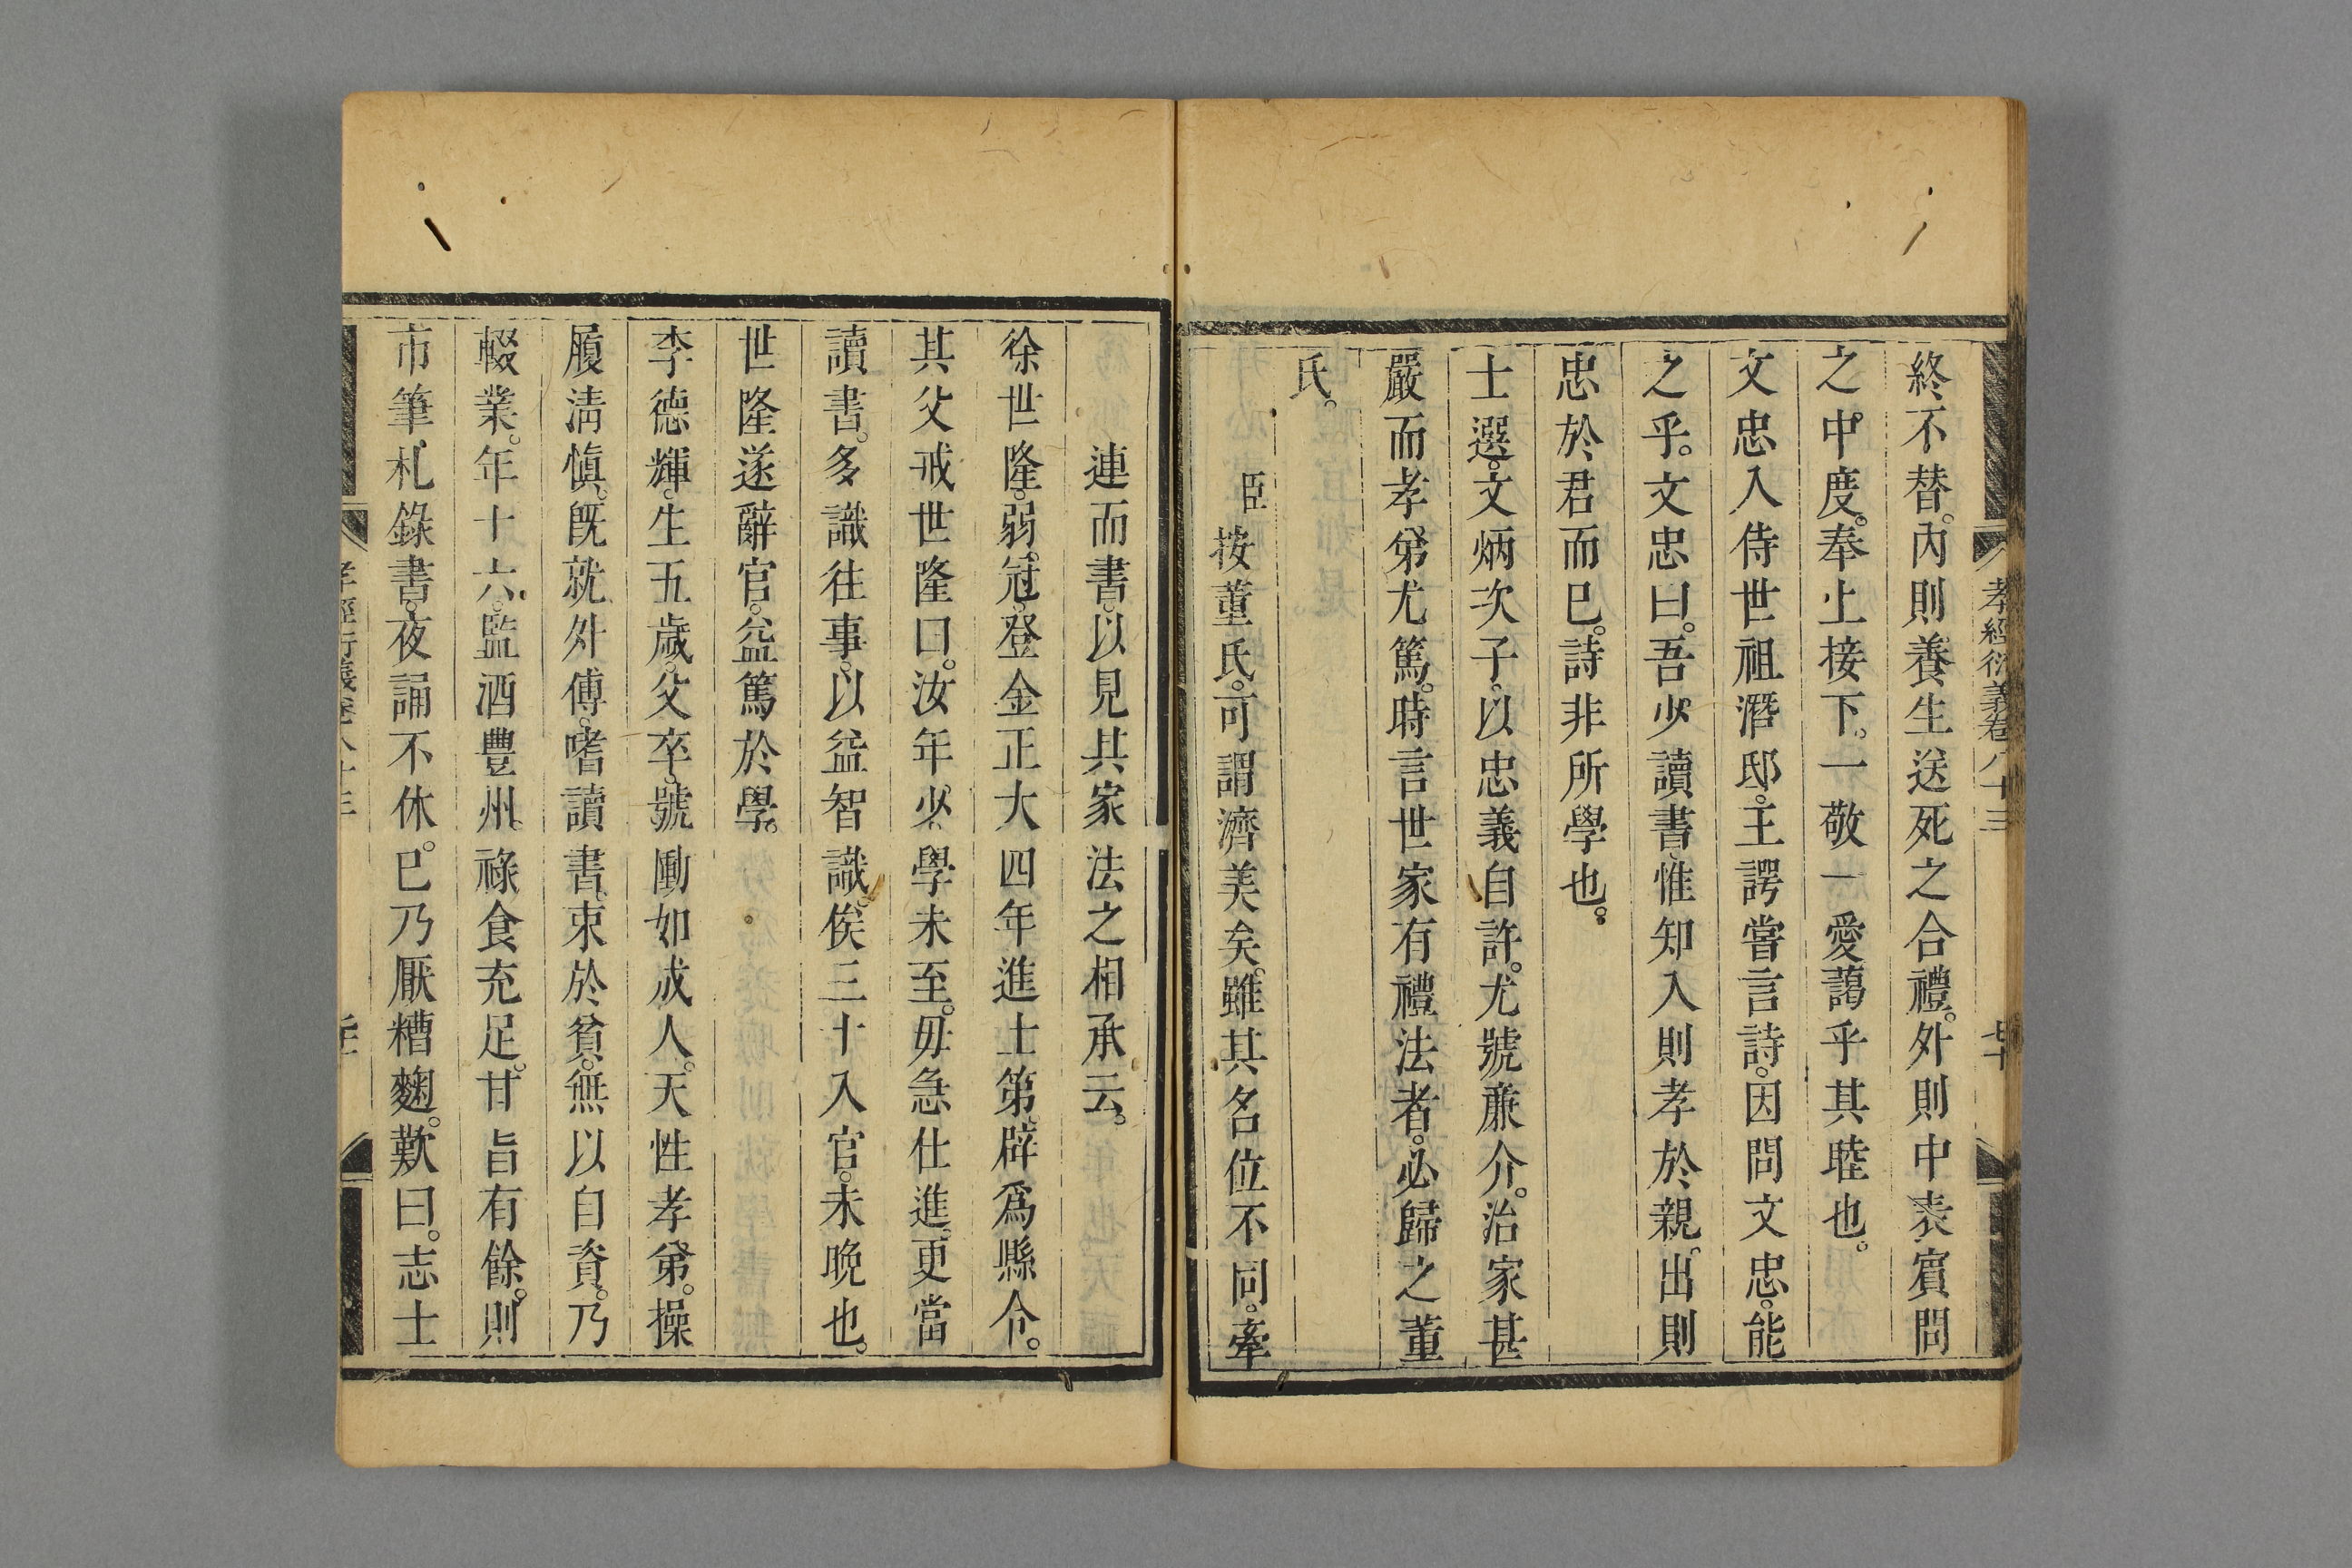 孝經衍義卷八十三
七十
終不替。內則養生送死之合禮。外則中表賓問
之中度。奉上接下。一敬一愛藹乎其睦也。
文忠入侍世祖潛邸。王諤嘗言詩。因問文忠。能
之乎。文忠曰。吾少讀書。惟知入則孝於親。出則
忠於君而已。詩非所學也。
士選。文炳次子。以忠義自許。尤號廉介。治家甚
嚴而孝弟尤篤。時言世家有禮法者。必歸之董
氏。
臣按董氏。可謂濟美矣。雖其名位不同。牽
連而書。以見其家法之相承云。
徐世隆。弱冠。登金正大四年進士第。辟爲縣令。
其父戒世隆曰。汝年少。學未至。毋急仕進。更當
讀書。多識往事。以益智識。俟三十入官。未晚也。
世隆遂辭官。益篤於學。
李德輝。生五歲。父卒。號慟如成人。天性孝弟。操
履淸愼。旣就外傅。嗜讀書。束於貧。無以自資。乃
輟業。年十六。監酒豐州。祿食充足。甘旨有餘。則
市筆札錄書。夜誦不休。已乃厭糟麴。歎曰。志士